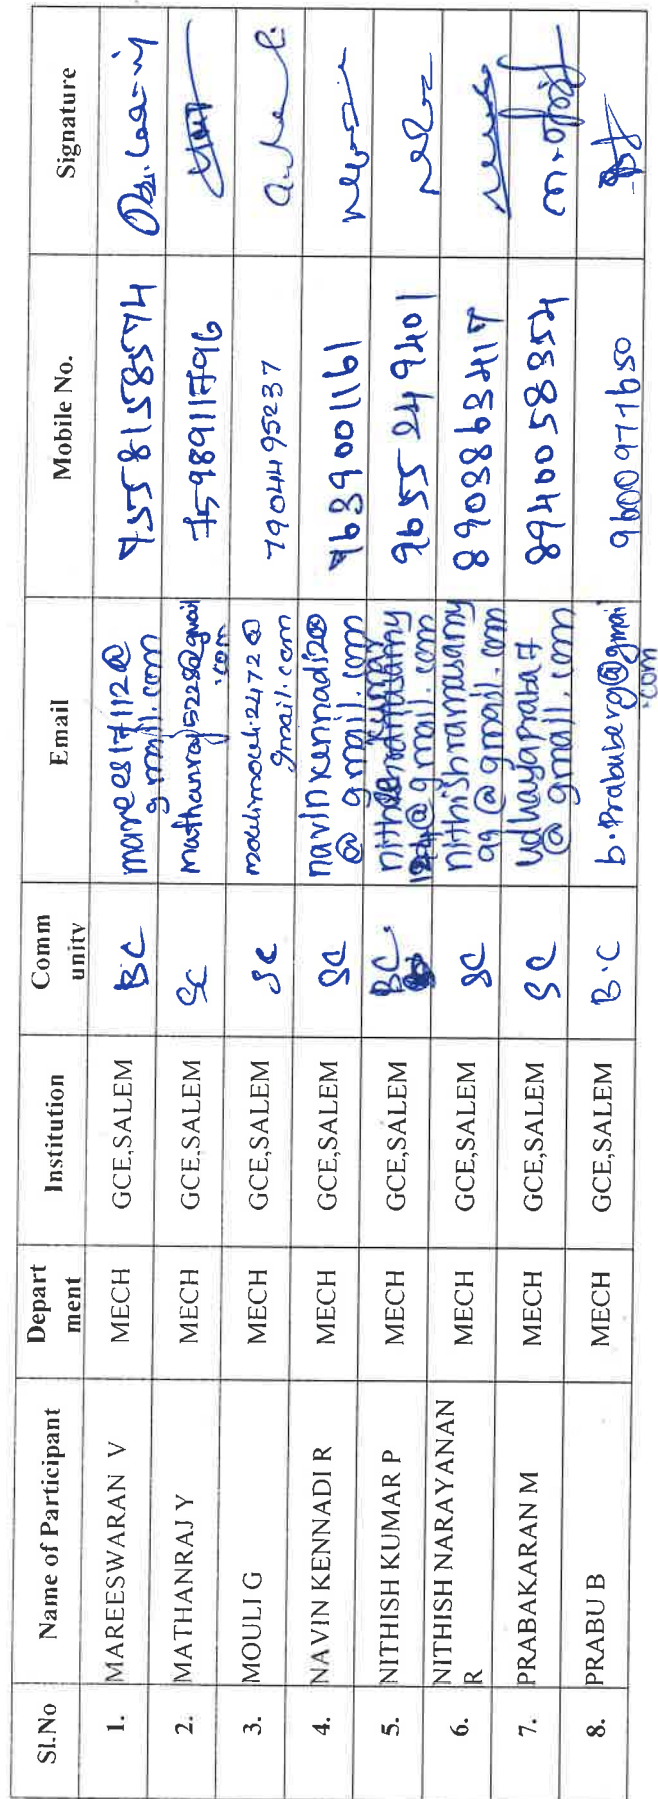 Sl.No Name of Participant Depart ment Institution Comm unity Email Mobile No. Signature
1. MAREESWARAN V MECH GCE,SALEM BC marees17112@ gmail.com 9558158574
2. MATHANRAJ Y MECH GCE,SALEM SC mathanraj5228@gmail .com 7598911796
3. MOULI G MECH GCE,SALEM SC moulimouli2472@ gmail.com 7904495237
4. NAVIN KENNADI R MECH GCE,SALEM SC navinkennadi20 @gmail.com 9639001161
5. NITHISH KUMAR P MECH GCE,SALEM BC @gmail.com 9655249401
6. NITHISH NARAYANAN R MECH GCE,SALEM SC nithishramasamy 99@gmail.com 8903863417
7. PRABAKARAN M MECH GCE,SALEM SC udhayapraba7 @gmail.com 8940058354
8. PRABU B MECH GCE,SALEM B.C b.prabuberg@gmai .com 9600971650